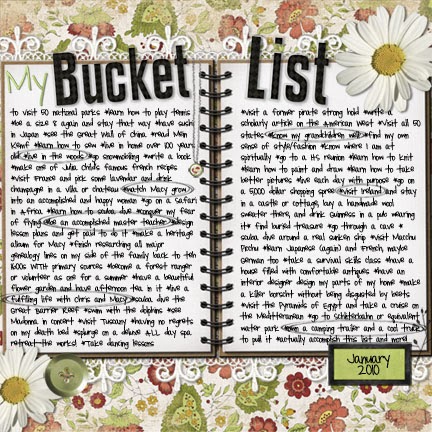 My Bucket List
to visit 50 national parks *learn how to play tennis
*be a size 8 again and stay that way *have sushi
in Japan *see the Great Wall of China *read Mein
Kempf *learn how to sew *live in home over 100 years
old *live in the woods *go snowmobiling *write a book
*make one of Julia Childs famous french recipes
*visit France and pick some lavender and drink
champagne in a villa or chateau *watch Macy grow
into an accomplished and happy woman *go on a safari
in Africa *learn how to scuba dive *conquer my fear
of flying *be an accomplished master teacher *design
lesson plans and get paid to do it *make a heritage
album for Macy *finish researching all major
genealogy lines on my side of the family back to ten
1600s WITH primary sources *become a forest ranger
or volunteer as one for a season *have a beautiful
flower garden and have afternoon tea in it *live a
fulfilling life with Chris and Macy *scuba dive the
Great Barrier Reef *swim with the dolphins *see
Madonna in concert *visit Tuscany *having no regrets
on my death bed *splurge on a deluxe ALL day spa
retreat-the works! *Take dancing lessons
*visit a former pirate strong hold *write a
scholarly article on the American West *visit all 50
states *know my grandchildren well *find my own
sense of style/fashion *know where I am at
spiritually *go to a HS reunion *learn how to knit
*learn how to paint and draw *learn how to take
better pictures *live each day with purpose *go on
a 5,000 dollar shopping spree *visit Ireland and stay
in a castle or cottage, buy a handmade wool
sweater there, and drink Guinness in a pub wearing
it *find buried treasure *go through a cave *
scuba dive around a real sunken ship *visit Macchu
Picchu *learn Japanese (again) and French, maybe
German too *take a survival skills class *have a
house filled with comfortable antiques *have an
interior designer design my parts of my home *make
a killer borscht without being disgusted by beets
*visit the Pyramids of Egypt and take a cruise on
the Mediterranean *go to Schlitterbahn or equivalent
water park *own a camping trailer and a cool truck
to pull it *actually accomplish this list and more!
January
2010